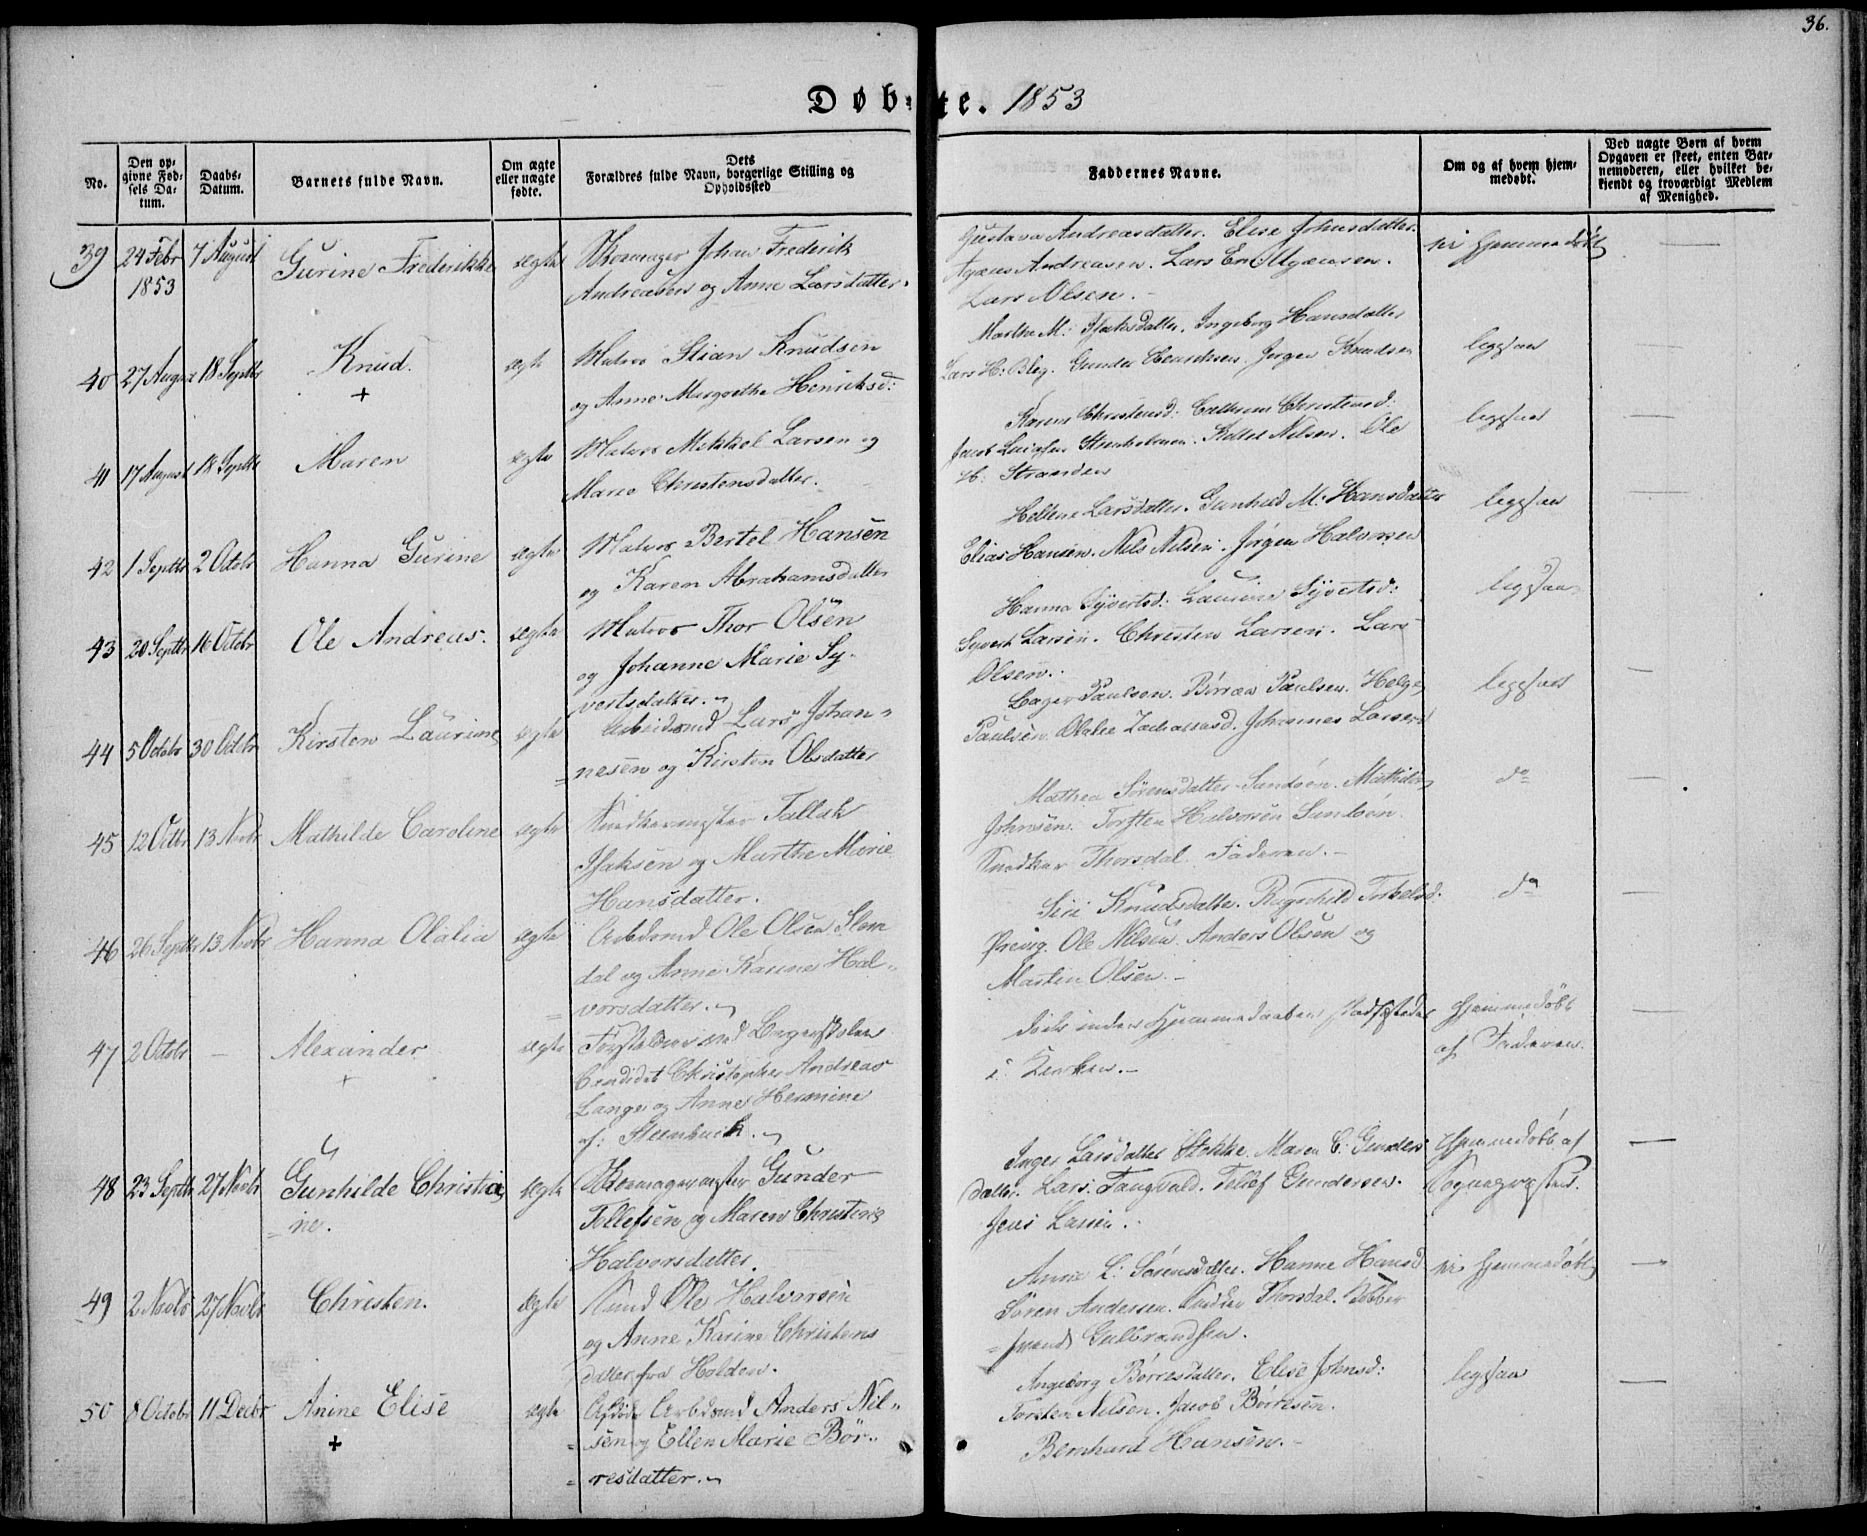 36.
Døbte. 1853
No.
Den op-
givne Fød-
sels Da-
tum.
Daabs-
Datum.
Barnets fulde Navn.
Om ægte
eller uægte
fødte.
Dets
Forældres fulde Navn, borgerlige Stilling og
Opholdssted
Faddernes Navne.
Om og af hvem hjem-
medøbt.
Ved uægte Børn af hvem
Opgaven er skeet, enten Bar-
nemoderen, eller hvilket be-
kjendt og troværdigt Medlem
af Menighed.
39 24 Febr 1853 7 August Gurine Frederikke ægte
Skomager Johan Frederik
Andreasen og Anne Larsdatter.
Gustava Andreasdatter. Elise Johnsdatter.
Andreasen. Lars
Lars Olsen.
ei hjemmedøbt
40 27 August 18 Septbr Knud. + ægte
Matros Stian Knudsen
og Anne Margrethe Henriksd:
Marthe M: Isaksdatter. Ingeborg Hansdatter
Lars H: Gunder Henriksen. Jørgen Knudsen
ligesaa
41 17 August 18 Septbr Maren ægte
Matros Mikkel Larsen og
Maria Christensdatter.
Karen Christensd: Cathrine Christensd:
Jacob Kittel Nilsen. Ole
H: Stranden
ligesaa
42 1 Septbr 2 Octobr Hanna Gurine ægte
Matros Bertel Hansen
og Karen Abrahamsdatter
Hellene Larsdatter. Gunhild M. Hansdatter
Elias Hansen. Nils Nilsen. Jørgen Halvorsen
ligesaa
43 20 Septbr 16 Octobr Ole Andreas. ægte
Matros Thor Olsen
og Johanne Marie Sy-
vertsdatter.
Hanna Syvertsd: Laurine Syvertsd:
Syvert Larsen. Christen Larsen. Lars
Olsen.
ligesaa
44 5 Octobr 30 Octobr Kirsten Laurine ægte
Arbeidsmd Lars Johan-
nesen og Kirsten Olsdatter
Paulsen. Børran Paulsen. Helge
Paulsen. Olalie Zachariasd. Johannes Larsen
ligesaa
45 12 Octbr 13 Novbr Mathilde Caroline ægte
Snedkermester Tallak
Isaksen og Marthe Marie
Hansdatter.
Mathea Sørensdatter Sundøen. Mathilde
Johnsen. Torsten Halvorsen Sundøen.
Snedker Thorsdal. Faderen.
do
46 26 Septbr 13 Novbr Hanna Olalia ægte
Arbdsmd Ole Olsen Slem
dal og Anne Karine Hal-
vorsdatter.
Siri Knudsdatter. Ragnhild Torkelsd.
Ole Nilsen. Anders Olsen og
Martin Olsen.
do
47 2 Octobr Alexander + ægte
Forstander ved Borgerskolen
Candidat Christopher Andreas
Lange og Anne Hermine
af: Steenbuch.
døde inden Hjemmedaabens Stadfæstelse
i Kirken.
Hjemmedøbt
af Faderen.
48 23 Septbr 27 Novbr Gunhilde Christia-
ne. ægte
Skomagermester Gunder
Tollefsen og Maren Christine
Halvorsdatter.
Inger Larsdatter Stokke. Maren C. Gunders
datter. Lars Tangvald. Tollef Gundersen.
Jens Larsen.
Hjemmedøbt af
Sognepræsten.
49 2 Novbr 27 Novbr Christen. ægte
Ole Halvorsen
og Anne Karine Christens
datter fra Holden.
Anne L: Sørensdatter. Hanne Hansd
Søren Andersen. Snedker Thorsdal. Kobber
smed Gulbrandsen.
ei hjemmedøbt
50 8 Octobr 11 Decbr Anine Elise + ægte
Afdøde Arbdsmd Anders Nil-
sen og Ellen Marie Bør-
resdatter.
Ingeborg Børresdatter. Elise Johnsd:
Torsten Nilsen. Jacob Børresen.
Bernhard Hansen.
ligesaa